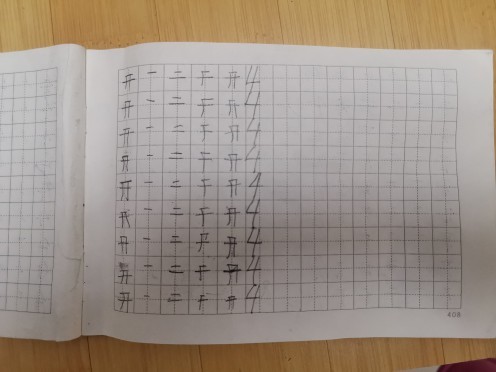 开 一 二 开 4
开 一 二 开 4
开 一 二 开 4
开 一 二 开 4
开 一 二 开 4
开 一 二 开 4
开 一 二 开 4
开 一 二 开 4
开 一 二 开 4
408